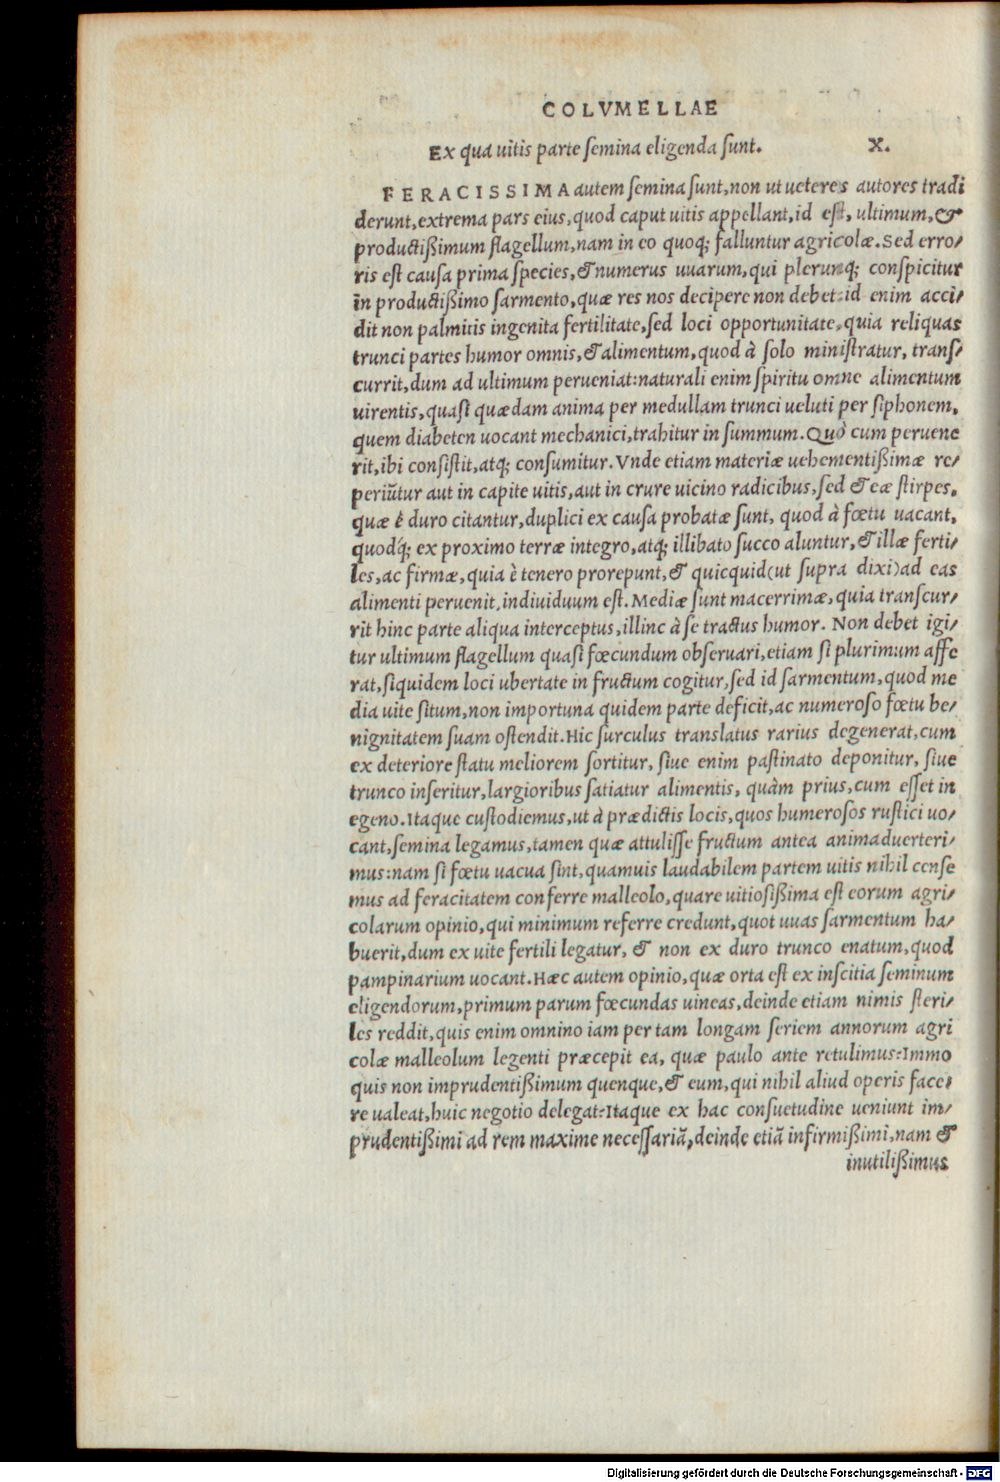 COLVMELLAE
Ex qua uitis parte ſemina eligenda ſunt. X.
FERACISSIMA autem ſemina ſunt, non ut ueteres autores tradi
derunt, extrema pars eius, quod caput uitis appellant, id eſt, ultimum, &
productißimum flagellum, nam in eo quoq; falluntur agricolæ. Sed erro/
ris eſt cauſa prima ſpecies, & numerus uuarum, qui plerunq; conſpicitur
in productißimo ſarmento, quæ res nos decipere non debet: id enim acci/
dit non palmitis ingenita fertilitate, ſed loci opportunitate, quia reliquas
trunci partes humor omnis, & alimentum, quod à ſolo miniſtratur, tranſ/
currit, dum ad ultimum perueniat: naturali enim ſpiritu omne alimentum
uirentis, quaſi quædam anima per medullam trunci ueluti per ſiphonem,
quem diabeten uocant mechanici, trahitur in ſummum. Quò cum peruene
rit, ibi conſiſtit, atq; conſumitur. Vnde etiam materiæ uehementißimæ re/
periũtur aut in capite uitis, aut in crure uicino radicibus, ſed & eæ ſtirpes,
quæ è duro citantur, duplici ex cauſa probatæ ſunt, quod à fœtu uacant,
quodq́; ex proximo terræ integro, atq; illibato ſucco aluntur, & illæ ferti/
les, ac firmæ, quia è tenero prorepunt, & quicquid (ut ſupra dixi) ad eas
alimenti peruenit, indiuiduum eſt. Mediæ ſunt macerrimæ, quia tranſcur/
rit hinc parte aliqua interceptus, illinc à ſe tractus humor. Non debet igi/
tur ultimum flagellum quaſi fœcundum obſeruari, etiam ſi plurimum affe
rat, ſiquidem loci ubertate in fructum cogitur, ſed id ſarmentum, quod me
dia uite ſitum, non importuna quidem parte deficit, ac numeroſo fœtu be/
nignitatem ſuam oſtendit. Hic ſurculus tranſlatus rarius degenerat, cum
ex deteriore ſtatu meliorem ſortitur, ſiue enim paſtinato deponitur, ſiue
trunco inſeritur, largioribus ſatiatur alimentis, quàm prius, cum eſſet in
egeno. Itaque cuſtodiemus, ut à prædictis locis, quos humeroſos ruſtici uo/
cant, ſemina legamus, tamen quæ attuliſſe fructum antea animaduerteri/
mus: nam ſi fœtu uacua ſint, quamuis laudabilem partem uitis nihil cenſe
mus ad feracitatem conferre malleolo, quare uitioſißima eſt eorum agri/
colarum opinio, qui minimum referre credunt, quot uuas ſarmentum ha/
buerit, dum ex uite fertili legatur, & non ex duro trunco enatum, quod
pampinarium uocant. Hæc autem opinio, quæ orta eſt ex inſcitia ſeminum
eligendorum, primum parum fœcundas uineas, deinde etiam nimis ſteri/
les reddit, quis enim omnino iam per tam longam ſeriem annorum agri
colæ malleolum legenti præcepit ea, quæ paulo ante retulimus? Immo
quis non imprudentißimum quenque, & eum, qui nihil aliud operis face/
re ualeat, huic negotio delegat? Itaque ex hac conſuetudine ueniunt im/
prudentißimi ad rem maxime neceſſariã, deinde etiã infirmißimi, nam &
inutilißimus
Digitalisierung gefördert durch die Deutsche Forschungsgemeinschaft - DFG